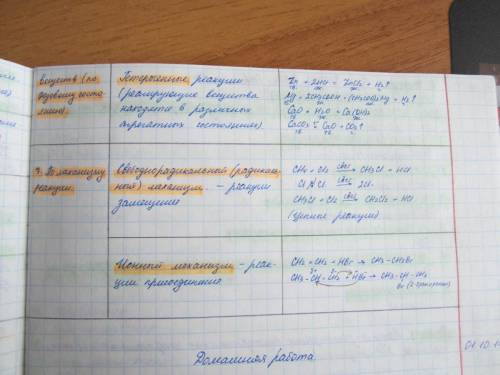 веществ (по
фазовому состо-
янию).
Гетерогенные реакции
(реагирующие вещества
находятся в различных
агрегатных состояниях)
Zn + 2HCl = ZnCl₂ + H₂↑
тв. ж. ж. г.
Mg + 2CH₃COOH = (CH₃COO)₂Mg + H₂↑
CaO + H₂O = Ca(OH)₂
тв. ж.
CaCO₃ = CaO + CO₂↑
тв. тв. г.
7. По механизму
реакции.
Свободнорадикальный (радикаль-
ный) механизм – реакции
замещения
CH₄ + Cl₂ свет→ CH₃Cl + HCl
Cl Cl свет→ 2Cl·
CH₃Cl + Cl₂ свет→ CH₂Cl₂ + HCl
(цепные реакции)
Ионный механизм – реак-
ции присоединения
CH₂ = CH₂ + HBr → CH₃–CH₂Br
CH₃–CH=CH₂ + HBr → CH₃–CH–CH₃
Br (2-бромпропан)
Домашняя работа.
01.10.1